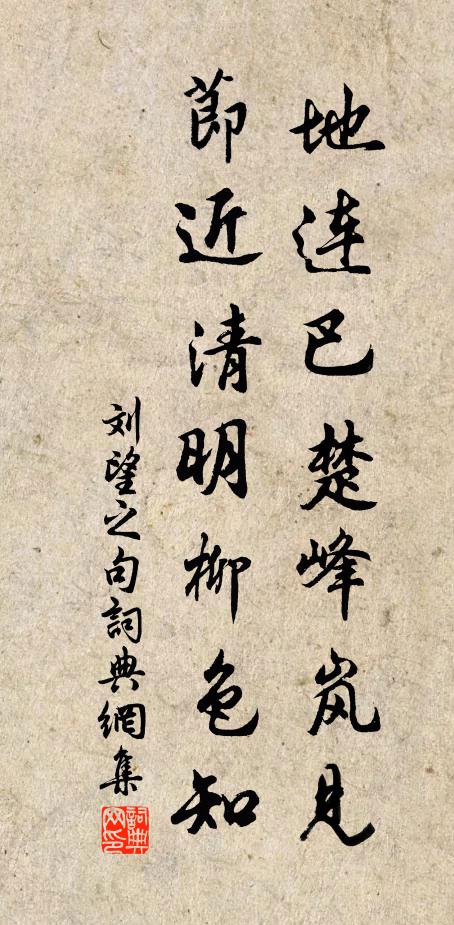 地连巴楚峰岚见
節近清明柳色知
刘望之句詞典網集
詞典網印